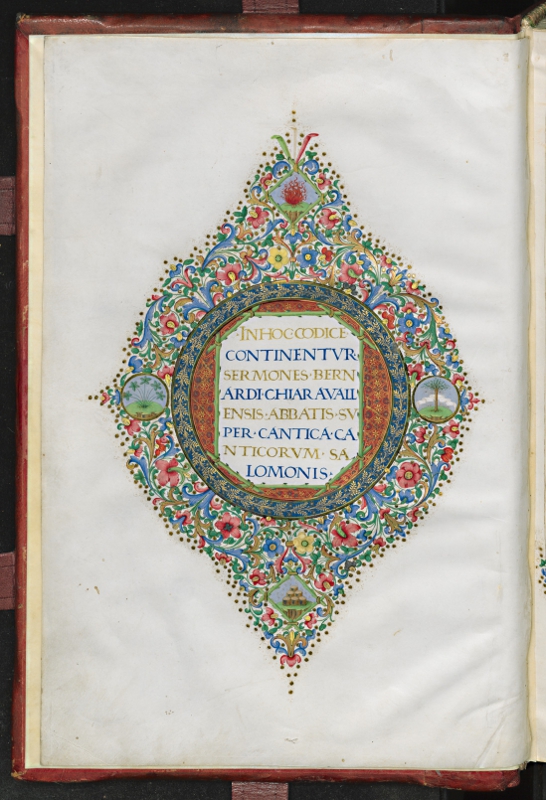 ·IN·HOC·CODICE·
CONTINENTVR·
SERMONES·BERN
ARDI·CHIARAVALL
ENSIS·ABBATIS·SV
PER·CANTICA·CA
NTICORVM·SA
LOMONIS·